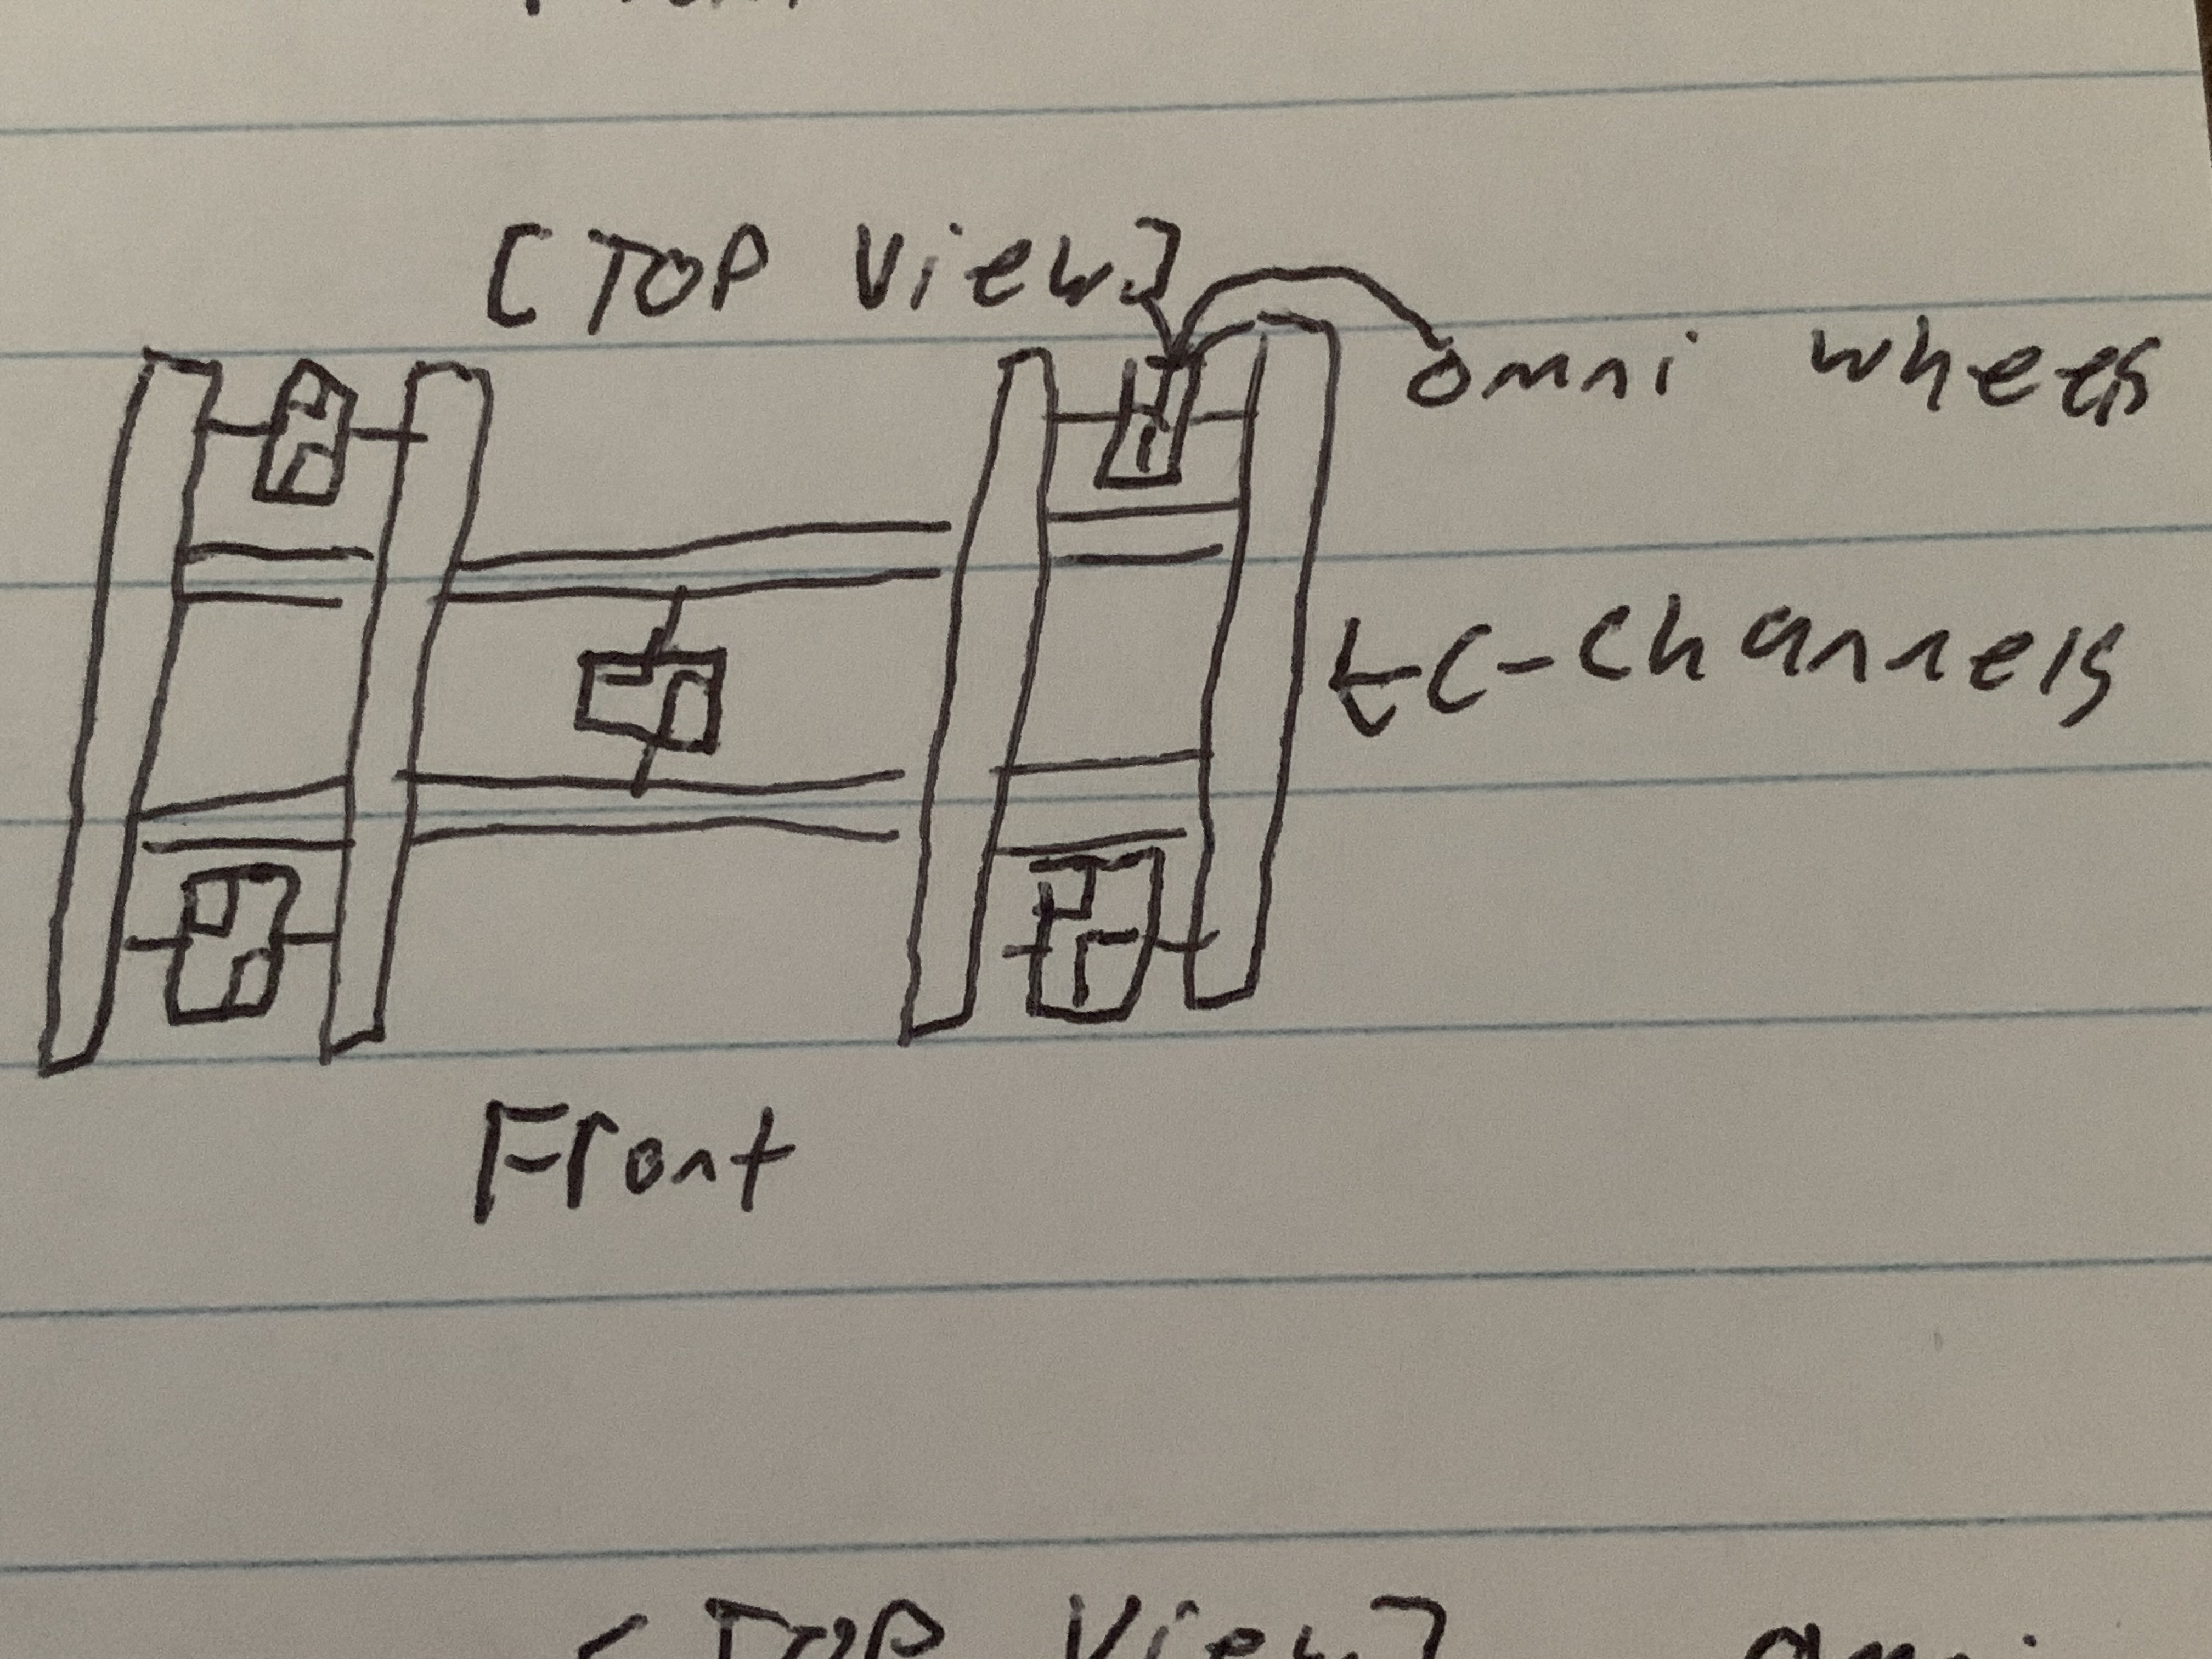 [TOP View]
omni wheels
C-Channels
Front
[TOP View]